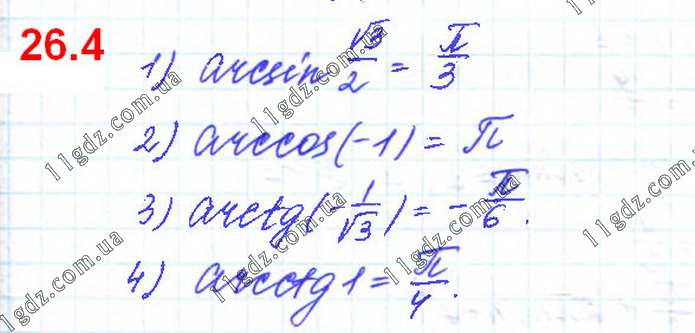 26.4
1) arcsin √3/2 = π/3
2) arccos(-1) = π
3) arctg(-1/√3) = -π/6.
4) arcctg 1 = π/4.
11gdz.com.ua
11gdz.com.ua
11gdz.com.ua
11gdz.com.ua
11gdz.com.ua
11gdz.com.ua
11gdz.com.ua